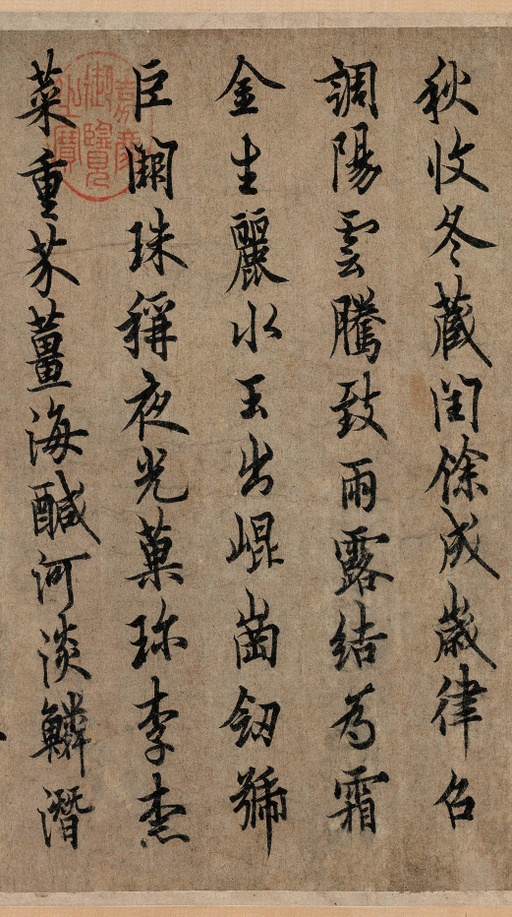 秋收冬蔵閏餘成歲律召
調陽雲騰致雨露結為霜
金生麗水玉出崐崗劒號
巨闕珠稱夜光菓珎李柰
菜重芥薑海鹹河淡鱗潛
嘉慶御覽之寶